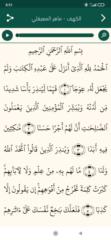 الكهف - ماهر المعيقلي
بِسْمِ اللَّهِ الرَّحْمَٰنِ الرَّحِيمِ
الْحَمْدُ لِلَّهِ الَّذِي أَنزَلَ عَلَىٰ عَبْدِهِ الْكِتَابَ وَلَمْ
يَجْعَل لَّهُ عِوَجًا ۜ ۝ قَيِّمًا لِّيُنذِرَ بَأْسًا شَدِيدًا
مِّن لَّدُنْهُ وَيُبَشِّرَ الْمُؤْمِنِينَ الَّذِينَ يَعْمَلُونَ
الصَّالِحَاتِ أَنَّ لَهُمْ أَجْرًا حَسَنًا ۝ مَّاكِثِينَ
فِيهِ أَبَدًا ۝ وَيُنذِرَ الَّذِينَ قَالُوا اتَّخَذَ اللَّهُ
وَلَدًا ۝ مَّا لَهُم بِهِ مِنْ عِلْمٍ وَلَا لِآبَائِهِمْ
كَبُرَتْ كَلِمَةً تَخْرُجُ مِنْ أَفْوَاهِهِمْ إِن يَقُولُونَ إِلَّا
كَذِبًا ۝ فَلَعَلَّكَ بَاخِعٌ نَّفْسَكَ عَلَىٰ آثَارِهِمْ